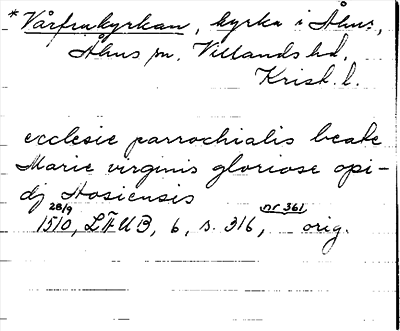 *Vårfrukyrkan, kyrka i Åhus,
Åhus sn. Villands hd.
Krist. l.
ecclesie parrochialis beate
Marie virginis gloriose opi-
dj Hosiensis
28/9 nr 361,
1510, LÄUB, 6, s. 316, orig.